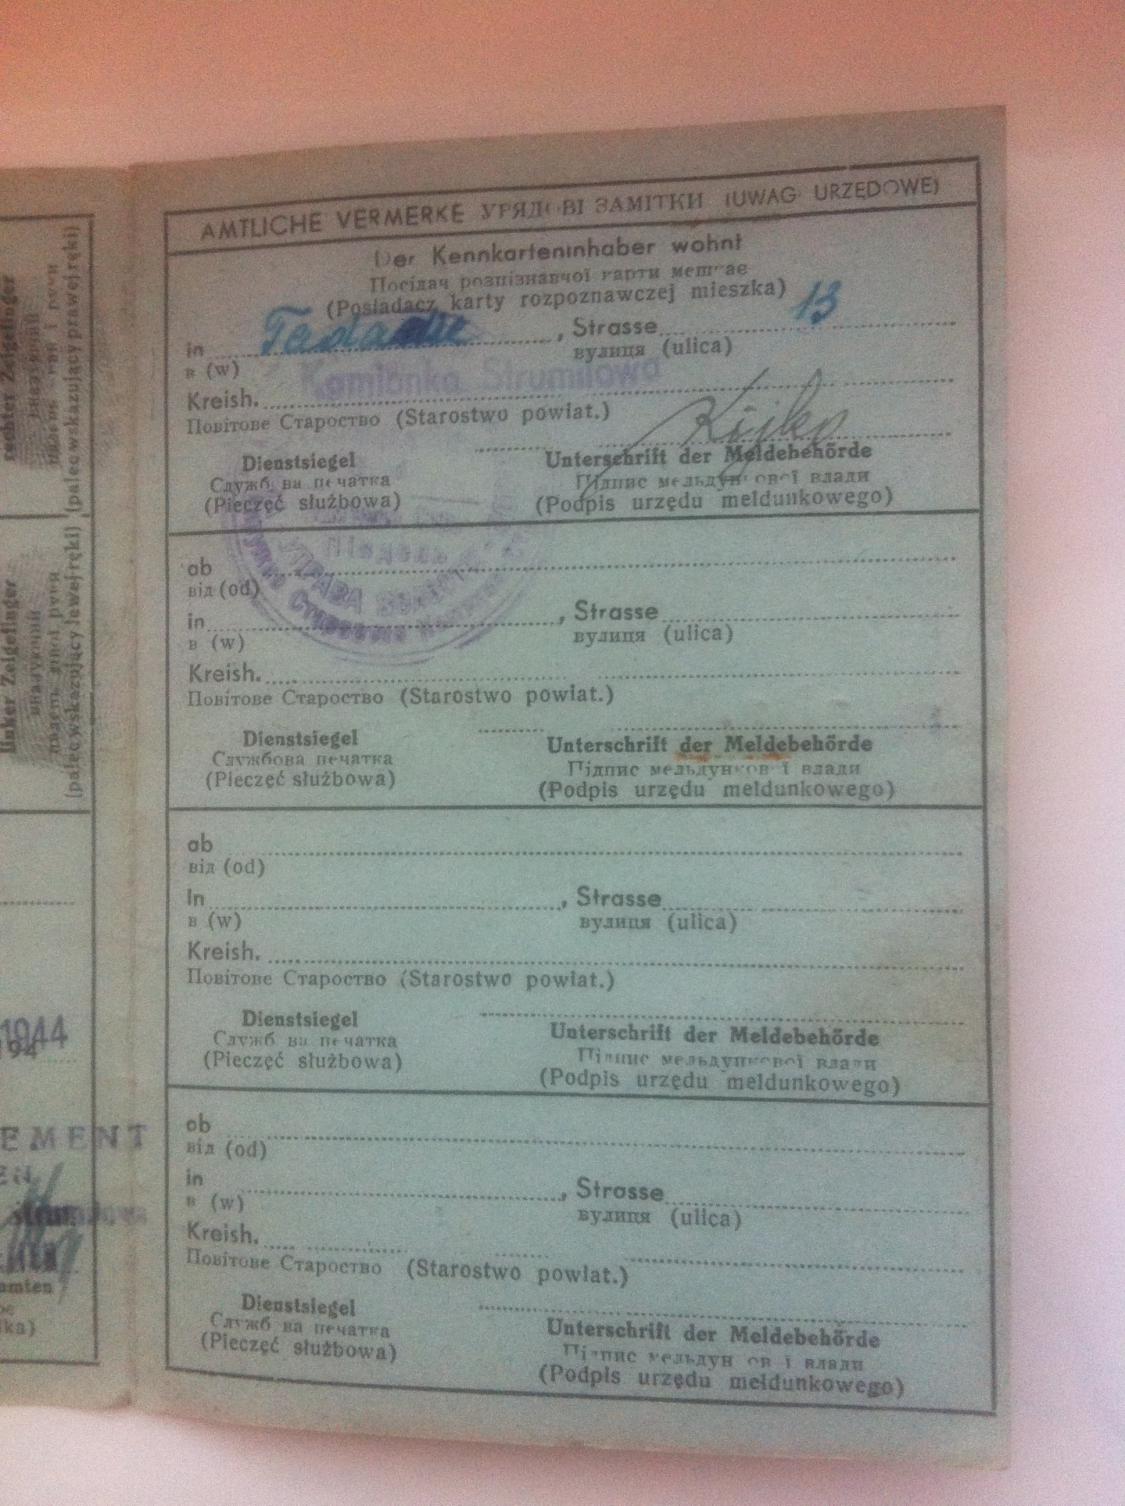 AMTLICHE VERMERKE УРЯДОВІ ЗАМІТКИ (UWAG URZĘDOWE)
Der Kennkarteninhaber wohnt
Посідач розпізнавчої карти мешкає
(Posiadacz karty rozpoznawczej mieszka)
in , Strasse 13
в (w) вулиця (ulica)
Kamionka Strumilowa
Kreish.
Повітове Староство (Starostwo powiat.)
Dienstsiegel Unterschrift der Meldebehörde
Службова печатка Підпис мельдункової влади
(Pieczęć służbowa) (Podpis urzędu meldunkowego)
УПРАВА
ab
від (od)
in , Strasse
в (w) вулиця (ulica)
Kreish.
Повітове Староство (Starostwo powiat.)
Dienstsiegel Unterschrift der Meldebehörde
Службова печатка Підпис мельдункової влади
(Pieczęć służbowa) (Podpis urzędu meldunkowego)
ab
від (od)
In , Strasse
в (w) вулиця (ulica)
Kreish.
Повітове Староство (Starostwo powiat.)
Dienstsiegel Unterschrift der Meldebehörde
Службова печатка Підпис мельдункової влади
(Pieczęć służbowa) (Podpis urzędu meldunkowego)
ab
від (od)
in , Strasse
в (w) вулиця (ulica)
Kreish.
Повітове Староство (Starostwo powiat.)
Dienstsiegel Unterschrift der Meldebehörde
Службова печатка Підпис мельдункової влади
(Pieczęć służbowa) (Podpis urzędu meldunkowego)
rechter Zeigefinger
(palec wskazujący prawej ręki)
linker Zeigefinger
вказуючий
палець лівої руки
(palec wskazujący lewej ręki)
1944
194
EMENT
amten
ka)